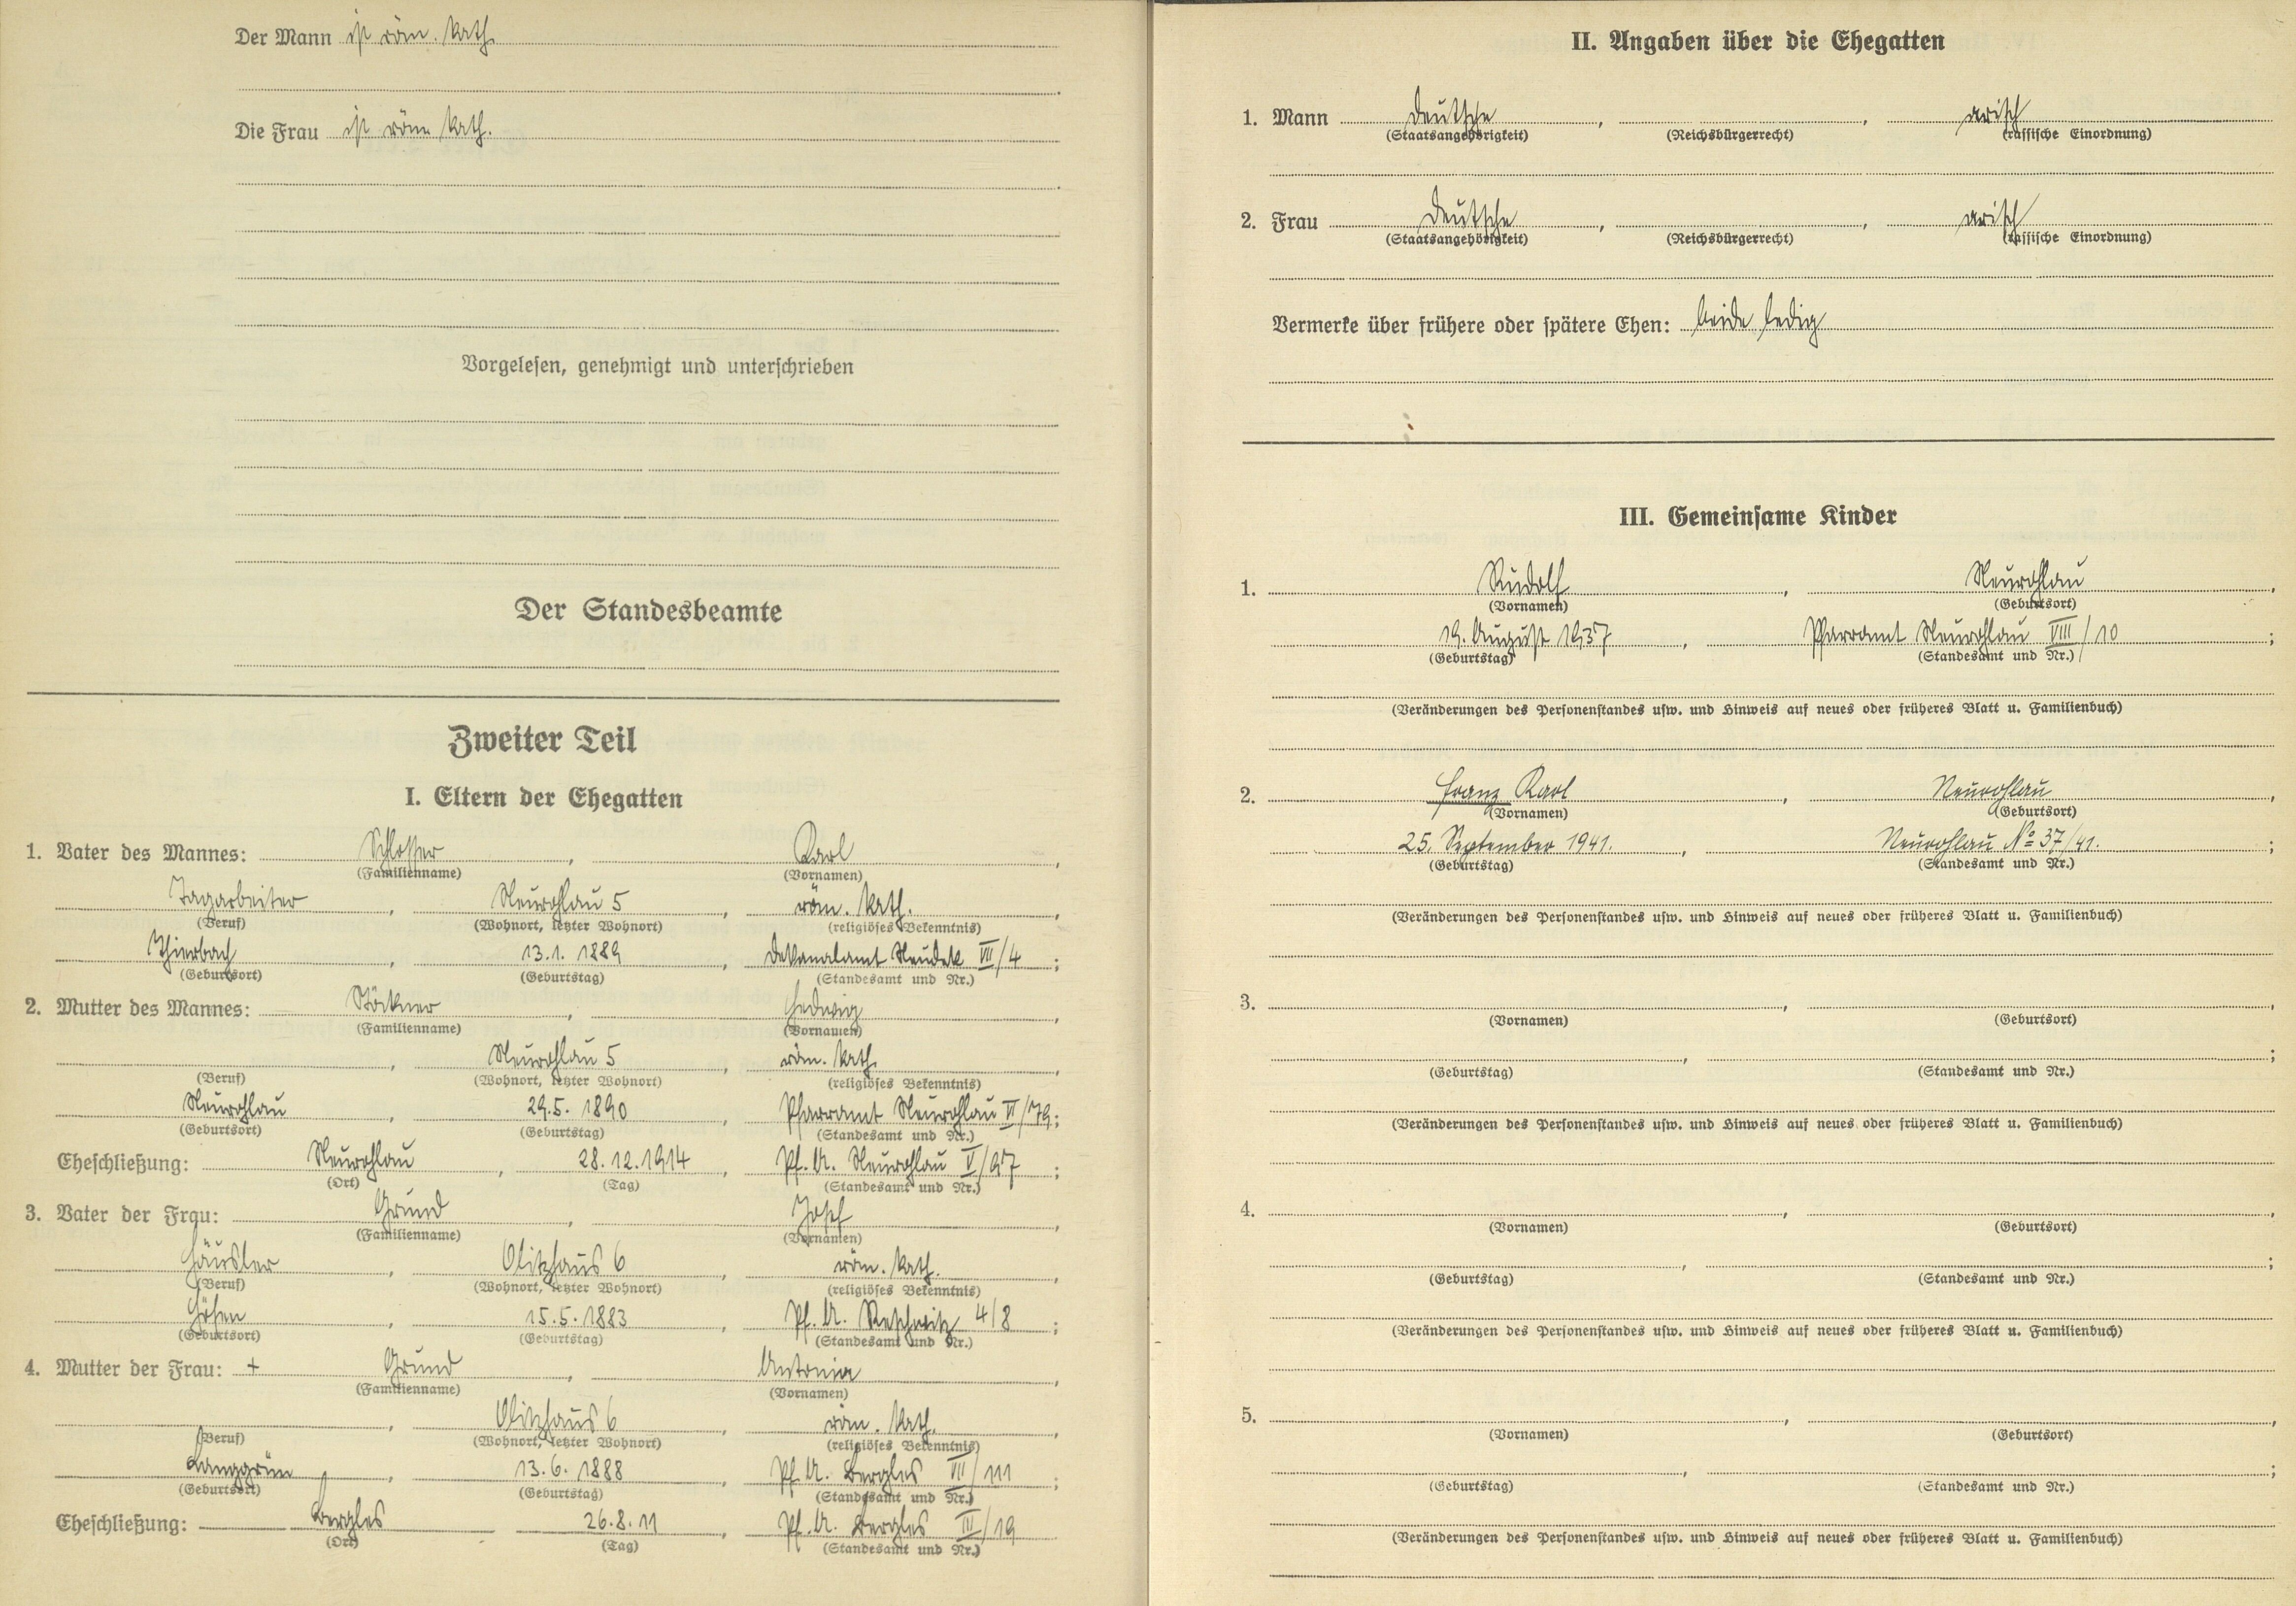 Der Mann ist röm. kath.
Die Frau ist röm. kath.
Vorgelesen, genehmigt und unterschrieben
Der Standesbeamte
Zweiter Teil
I. Eltern der Ehegatten
1. Vater des Mannes: Schlosser, Karl,
(Familienname) (Vornamen)
Tagarbeiter, Neurohlau 5, röm. kath.,
(Beruf) (Wohnort, letzter Wohnort) (religiöses Bekenntnis)
Thierbach, 13.1.1889, Dekanalamt Neudek VIII/4;
(Geburtsort) (Geburtstag) (Standesamt und Nr.)
2. Mutter des Mannes: Stöckner, Hedwig,
(Familienname) (Vornamen)
, Neurohlau 5, röm. kath.,
(Beruf) (Wohnort, letzter Wohnort) (religiöses Bekenntnis)
Neurohlau, 29.5.1890, Pfarramt Neurohlau VI/79;
(Geburtsort) (Geburtstag) (Standesamt und Nr.)
Eheschließung: Neurohlau, 28.12.1914, Pf. A. Neurohlau V/97;
(Ort) (Tag) (Standesamt und Nr.)
3. Vater der Frau: Grund, Josef,
(Familienname) (Vornamen)
Häusler, Olitzhaus 6, röm. kath.,
(Beruf) (Wohnort, letzter Wohnort) (religiöses Bekenntnis)
Gösen, 15.5.1883, Pf. A. 4/8;
(Geburtsort) (Geburtstag) (Standesamt und Nr.)
4. Mutter der Frau: + Grund, Antonia,
(Familienname) (Vornamen)
, Olitzhaus 6, röm. kath.,
(Beruf) (Wohnort, letzter Wohnort) (religiöses Bekenntnis)
Langgrün, 13.6.1888, Pf. A. Bergles VII/111;
(Geburtsort) (Geburtstag) (Standesamt und Nr.)
Eheschließung: Bergles 26.8.11, Pf. A. Bergles III/19
(Ort) (Tag) (Standesamt und Nr.)
II. Angaben über die Ehegatten
1. Mann deutsche, , arisch
(Staatsangehörigkeit) (Reichsbürgerrecht) (rassische Einordnung)
2. Frau deutsche, , arisch
(Staatsangehörigkeit) (Reichsbürgerrecht) (rassische Einordnung)
Vermerke über frühere oder spätere Ehen: beide ledig
III. Gemeinsame Kinder
1. Rudolf, Neurohlau,
(Vornamen) (Geburtsort)
19. August 1937, Pfarramt Neurohlau VIII/10;
(Geburtstag) (Standesamt und Nr.)
(Veränderungen des Personenstandes usw. und Hinweis auf neues oder früheres Blatt u. Familienbuch)
2. Franz Karl, Neurohlau,
(Vornamen) (Geburtsort)
25. September 1941., Neurohlau No 37/41.;
(Geburtstag) (Standesamt und Nr.)
(Veränderungen des Personenstandes usw. und Hinweis auf neues oder früheres Blatt u. Familienbuch)
3. , ,
(Vornamen) (Geburtsort)
, ;
(Geburtstag) (Standesamt und Nr.)
(Veränderungen des Personenstandes usw. und Hinweis auf neues oder früheres Blatt u. Familienbuch)
4. , ,
(Vornamen) (Geburtsort)
, ;
(Geburtstag) (Standesamt und Nr.)
(Veränderungen des Personenstandes usw. und Hinweis auf neues oder früheres Blatt u. Familienbuch)
5. , ,
(Vornamen) (Geburtsort)
, ;
(Geburtstag) (Standesamt und Nr.)
(Veränderungen des Personenstandes usw. und Hinweis auf neues oder früheres Blatt u. Familienbuch)